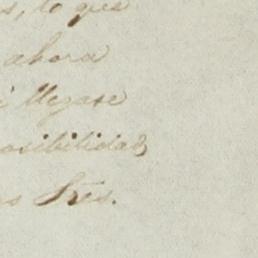 s, lo que
ahora
i llegase
posibilidad,
os Sres.